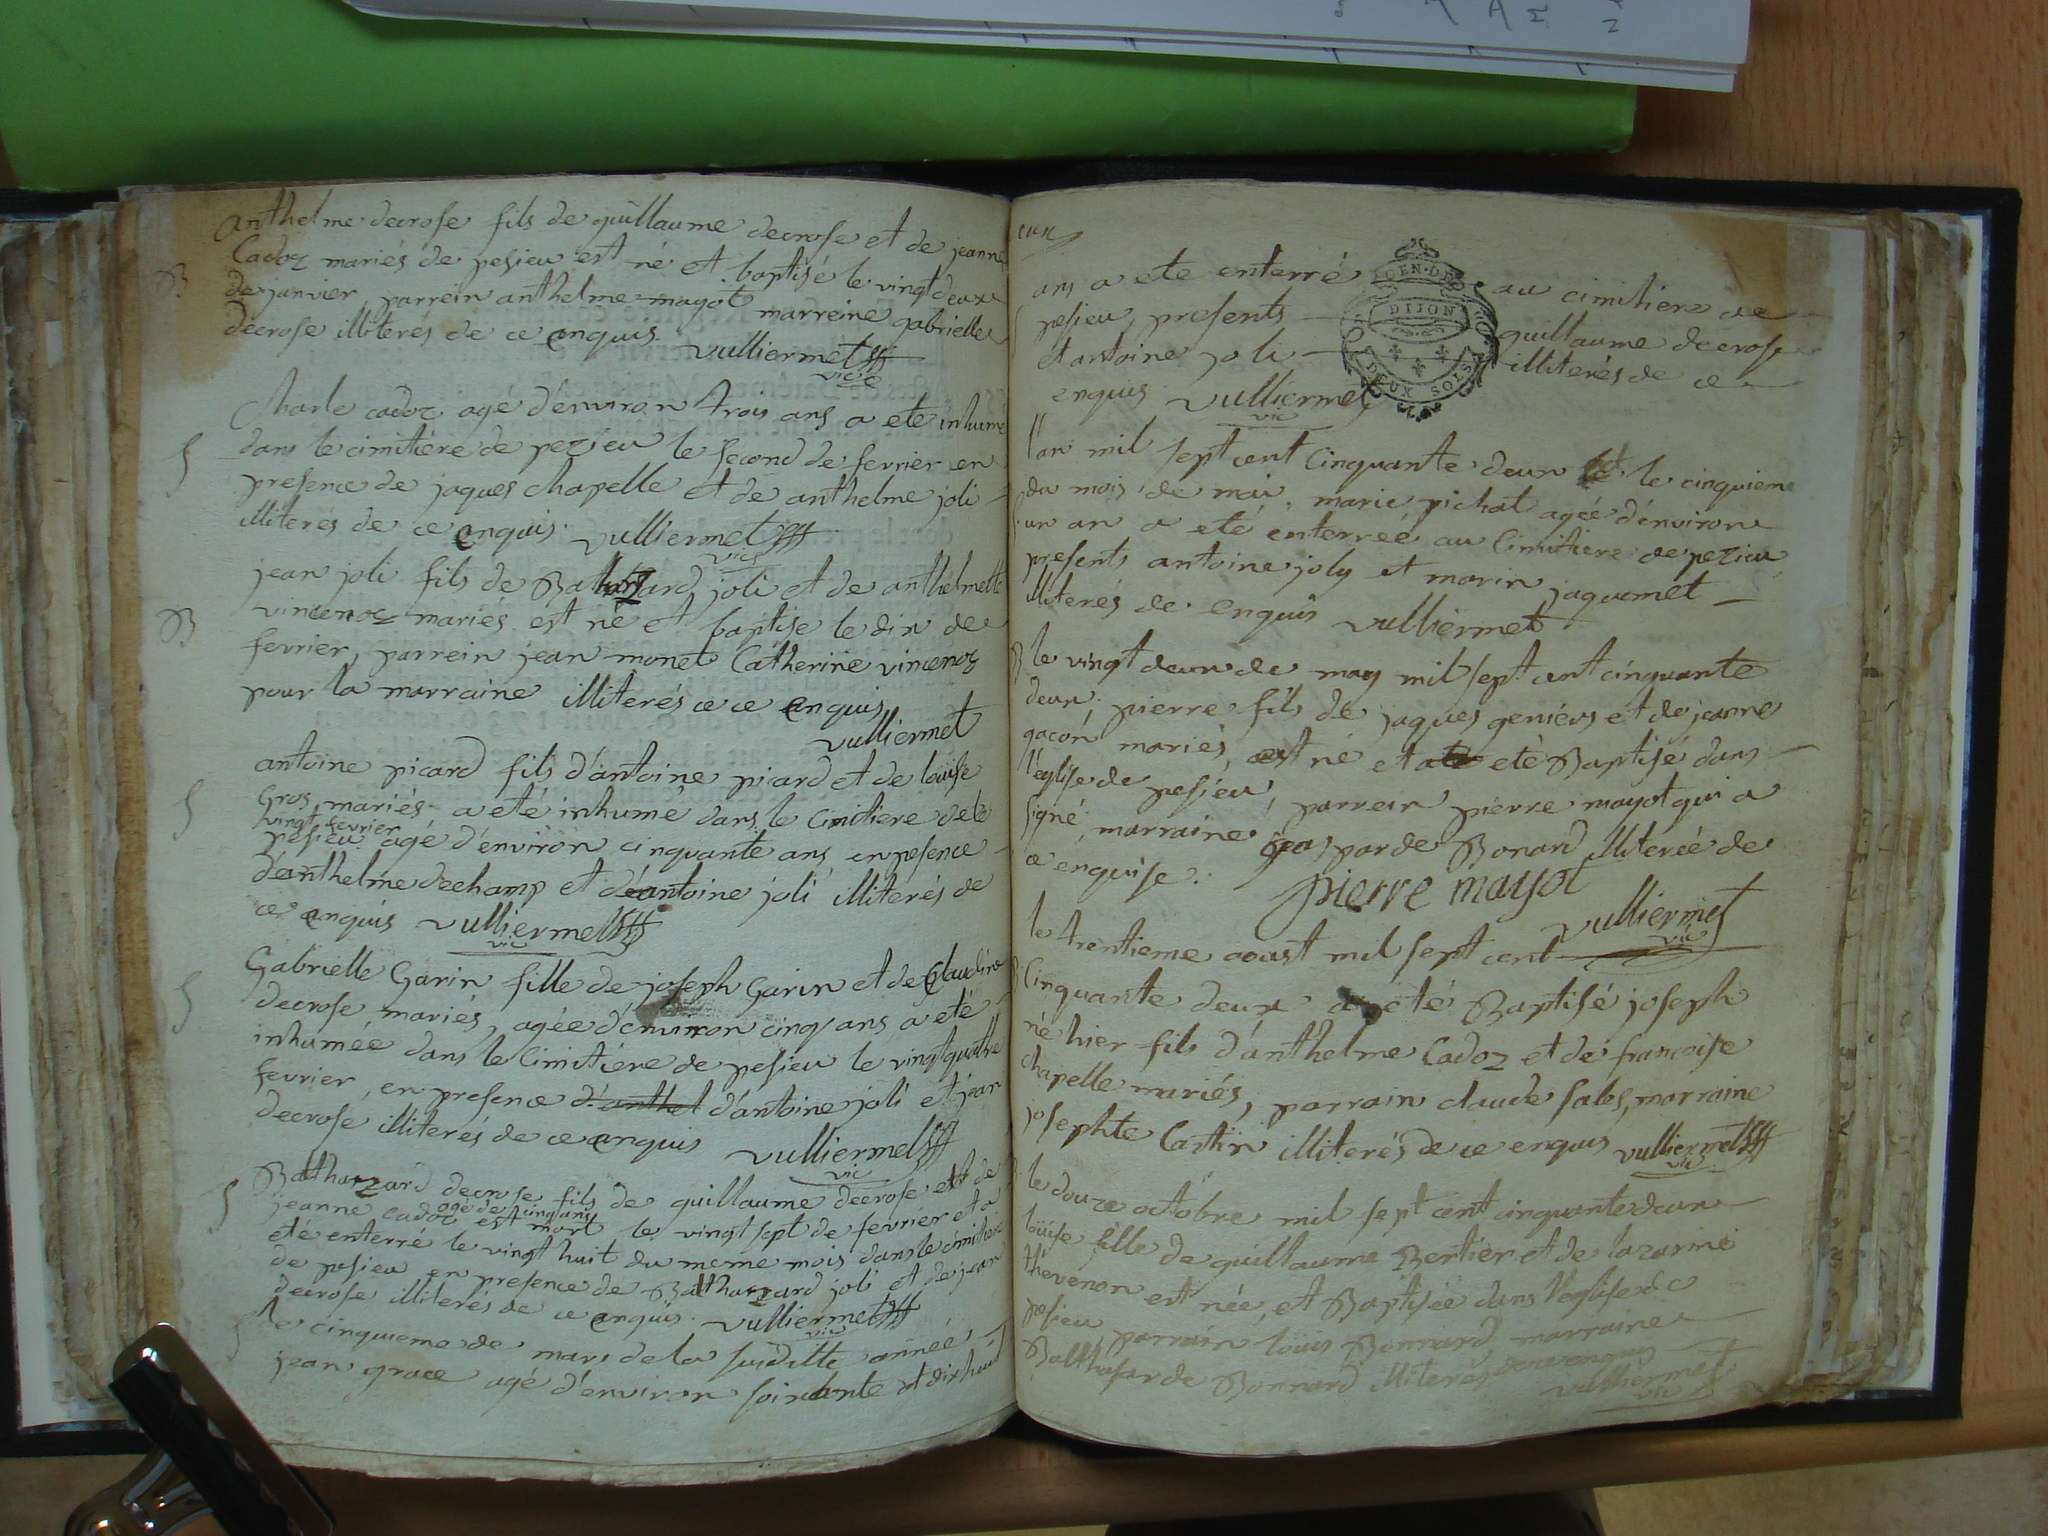 anthelme decrose fils de guillaume decrose et de jeanne
Cadoz mariés de pesieu est né et baptisé le vingt deux
B
de janvier, parrein anthelme mayot marreine gabrielle
decrose illiterés de ce enquis. vulliermet
vic
Charle cadoz agé d'environ trois ans a eté inhumé
S
dans le cimitière de pezieu le second de fevrier en
presence de jaques chapelle et de anthelme joli
illiterés de ce enquis. vulliermet
vic
jean joli fils de Balthazard joli et de anthelmette
B
vincenoz mariés est né et baptise le dix de
fevrier, parrein jean monet Catherine vincenoz
pour la marraine illiterés de ce enquis
vulliermet
antoine picard fils d'antoine picard et de louise
S
Gros mariés a eté inhumé dans le Cimitiere de
vingt fevrier
pesieu agé d'environ cinquante ans en presence
d'anthelme dechamp et de antoine joli illiterés de
ce enquis vulliermet
vic
Gabrielle Garin fille de joseph Garin et de Claudine
S
decrose mariés, agée d'environ cinq ans a eté
inhumée dans le Cimitiére de pesieu le vingt quatre
fevrier, en presence d'anthel d'antoine joli et jean
decrose illiterés de ce enquis vulliermet
vic
S
Balthazard decrose fils de guillaume decrose et de
agé de cinq ans
jeanne cadoz est mort le vingt sept de fevrier et a
eté enterré le vingt huit du meme mois dans le cimitiere
de pesieu en presence de Balthazard joli et de jean
decrose illiterés de ce enquis. vulliermet
vic
S
le cinquieme de mars de la susditte année
jean grace agé d'environ soixante et dix huit
ans a ete enterré au cimitiere de
GEN. DE
DIJON
DEUX SOLS
pesieu, presents guillaume decrose
et antoine joli illiterés de ce
enquis vulliermet
vic
l'an mil sept cent Cinquante deux le cinquieme
du mois de mai, marie pichat agée d'environ
un an a eté enterrée au Cimitiere de pezieu
presents antoine joly et marin jaquemet
illiterés de enquis vulliermet
B
le vingt deux de may mil sept cent cinquante
deux pierre fils de jaques geniévs et de jeanne
gacon mariés, est né et a eté Baptisé dans
l'eglise de pesieu, parrein pierre mayot qui a
signé, marraine gasparde Bonard illiterée de
ce enquise. pierre mayot
vulliermet
vic
le trentieme aoust mil sept cent
B
Cinquante deux a été Baptisé joseph
né hier fils d'anthelme Cadoz et de francoise
chapelle mariés, parrain claude sales, marraine
josephte Castin illiterés de ce enquis vulliermet
vic
B
le douze octobre mil sept cent cinquante deux
louise fille de guillaume Bertier et de lazarine
thevenon est née, et Baptisée dans l'eglise de
pesieu parrain louis Bonnard, marraine
Balthasarde Bonnard illiterés de ce enquis
vulliermet
vic